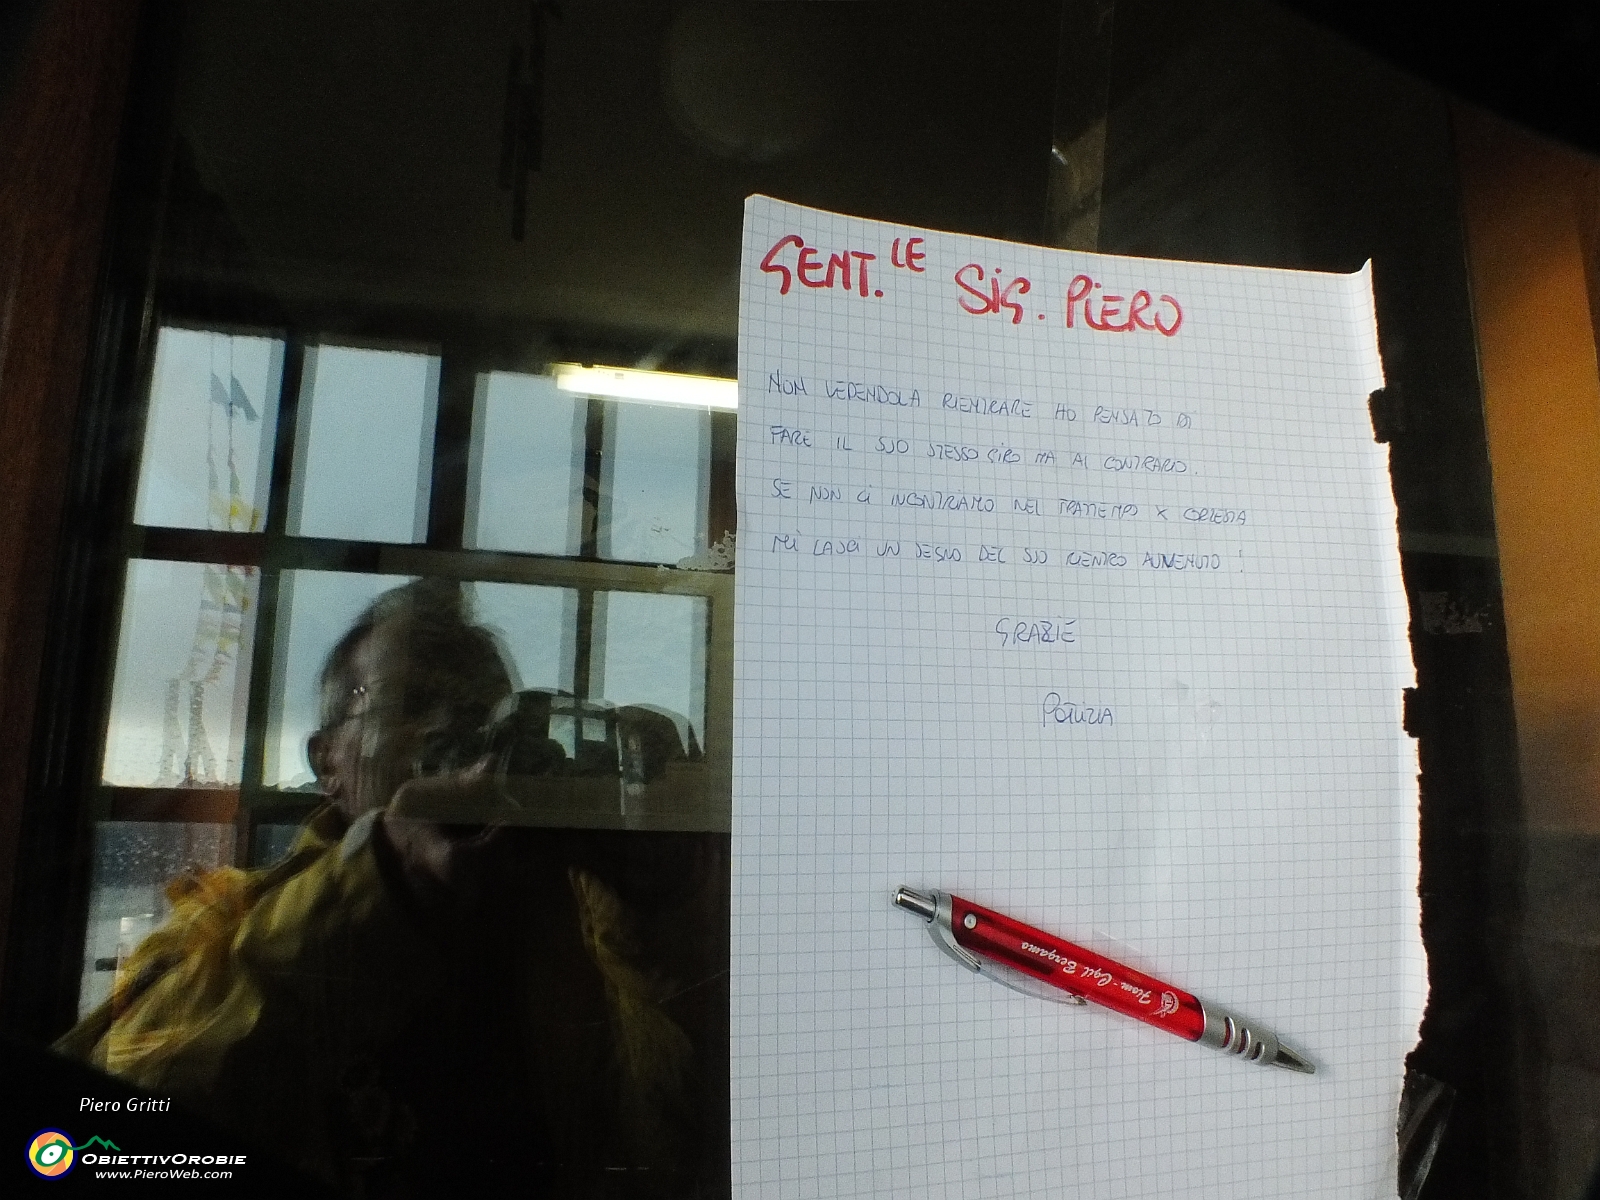 GENT.LE SIG. PIERO
NON VEDENDOLA RIENTRARE HO PENSATO DI
FARE IL SUO STESSO GIRO MA AL CONTRARIO.
SE NON CI INCONTRIAMO NEL FRATTEMPO X CORTESIA
MI LASCI UN SEGNO DEL SUO RIENTRO AVVENUTO !
GRAZIE
Fiom - Cgil Bergamo
Piero Gritti
OBIETTIVOROBIE
www.PieroWeb.com